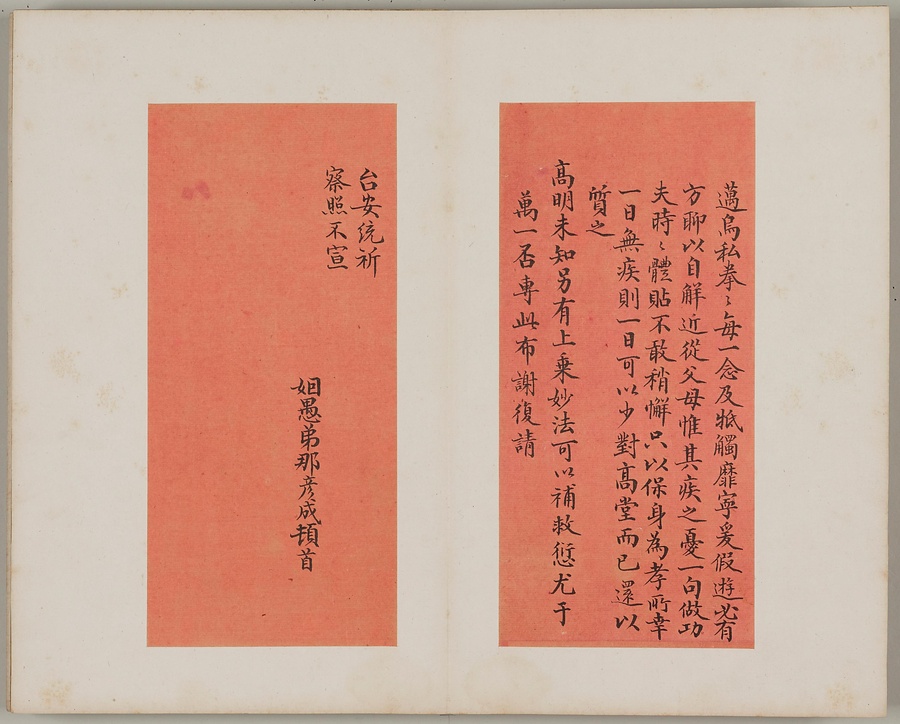 邁烏私拳〻每一念及牴觸靡寧爰假遊必有
方聊以自解近從父母惟其疾之憂一句做功
夫時〻體貼不敢稍懈只以保身為孝所幸
一日無疾則一日可以少對高堂而已還以
質之
高明未知另有上乘妙法可以補救愆尤于
萬一否專此布謝復請
台安統祈
察照不宣
姻愚弟那彥成頓首